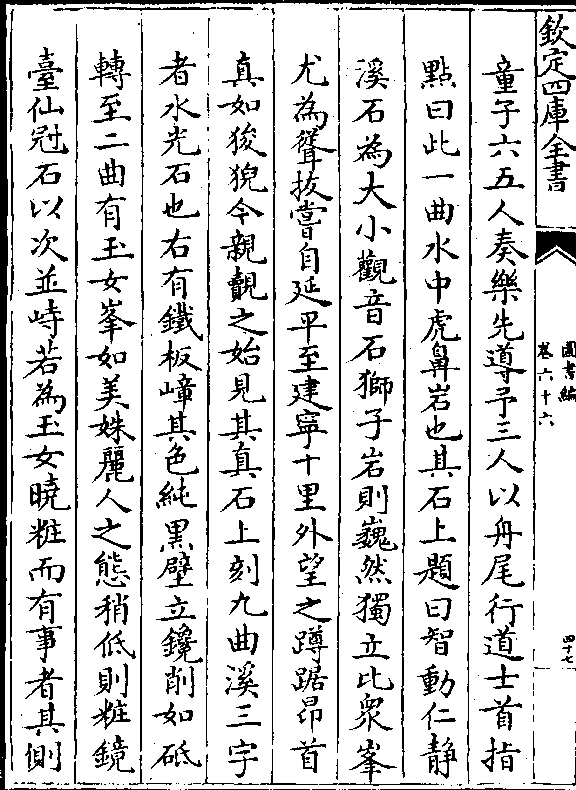 欽定四庫全書
圖書編
卷六十六
四十七
童子六五人奏樂先導予三人以舟尾行道士首指
點曰此一曲水中虎鼻岩也其石上題曰智動仁靜
溪石為大小觀音石獅子岩則巍然獨立比衆峯
尤為聳拔嘗自延平至建寧十里外望之蹲踞昂首
真如狻猊今親覿之始見其真石上刻九曲溪三字
者水光石也右有鐵板嶂其色純黒壁立鑱削如砥
轉至二曲有玉女峯如美姝麗人之態稍低則粧鏡
臺仙冠石以次並峙若為玉女曉粧而有事者其側